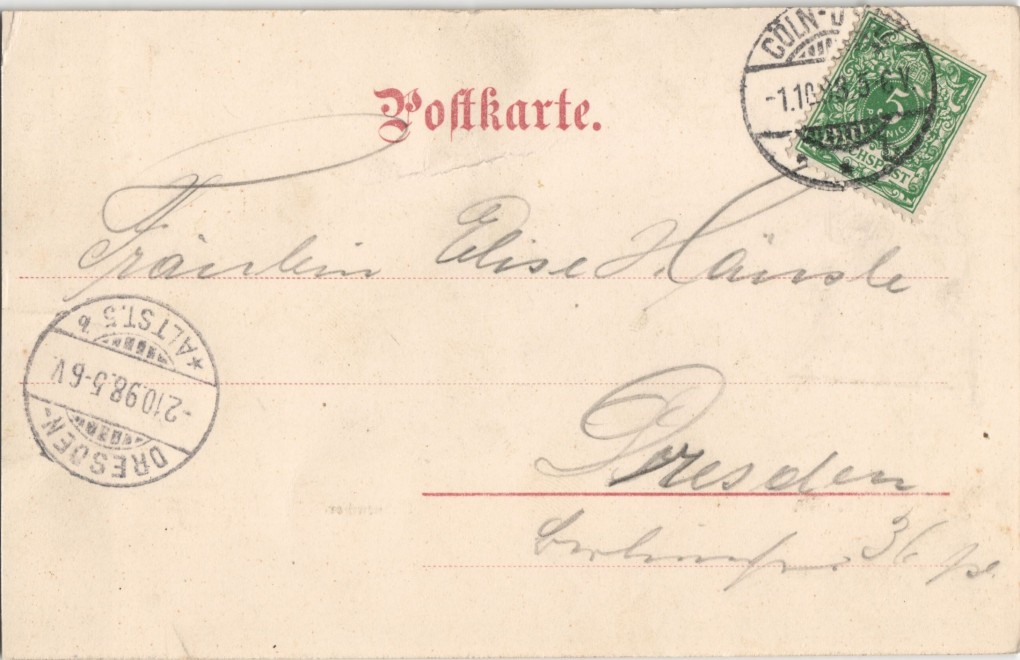 Postkarte.
CÖLN-D
-1.10.98.5-6V
5
REICHSPOST
Fräulein Elise Hänsle
*ALTST.5 b
-2.10.98.5-6V.
DRESDEN-
Dresden
36